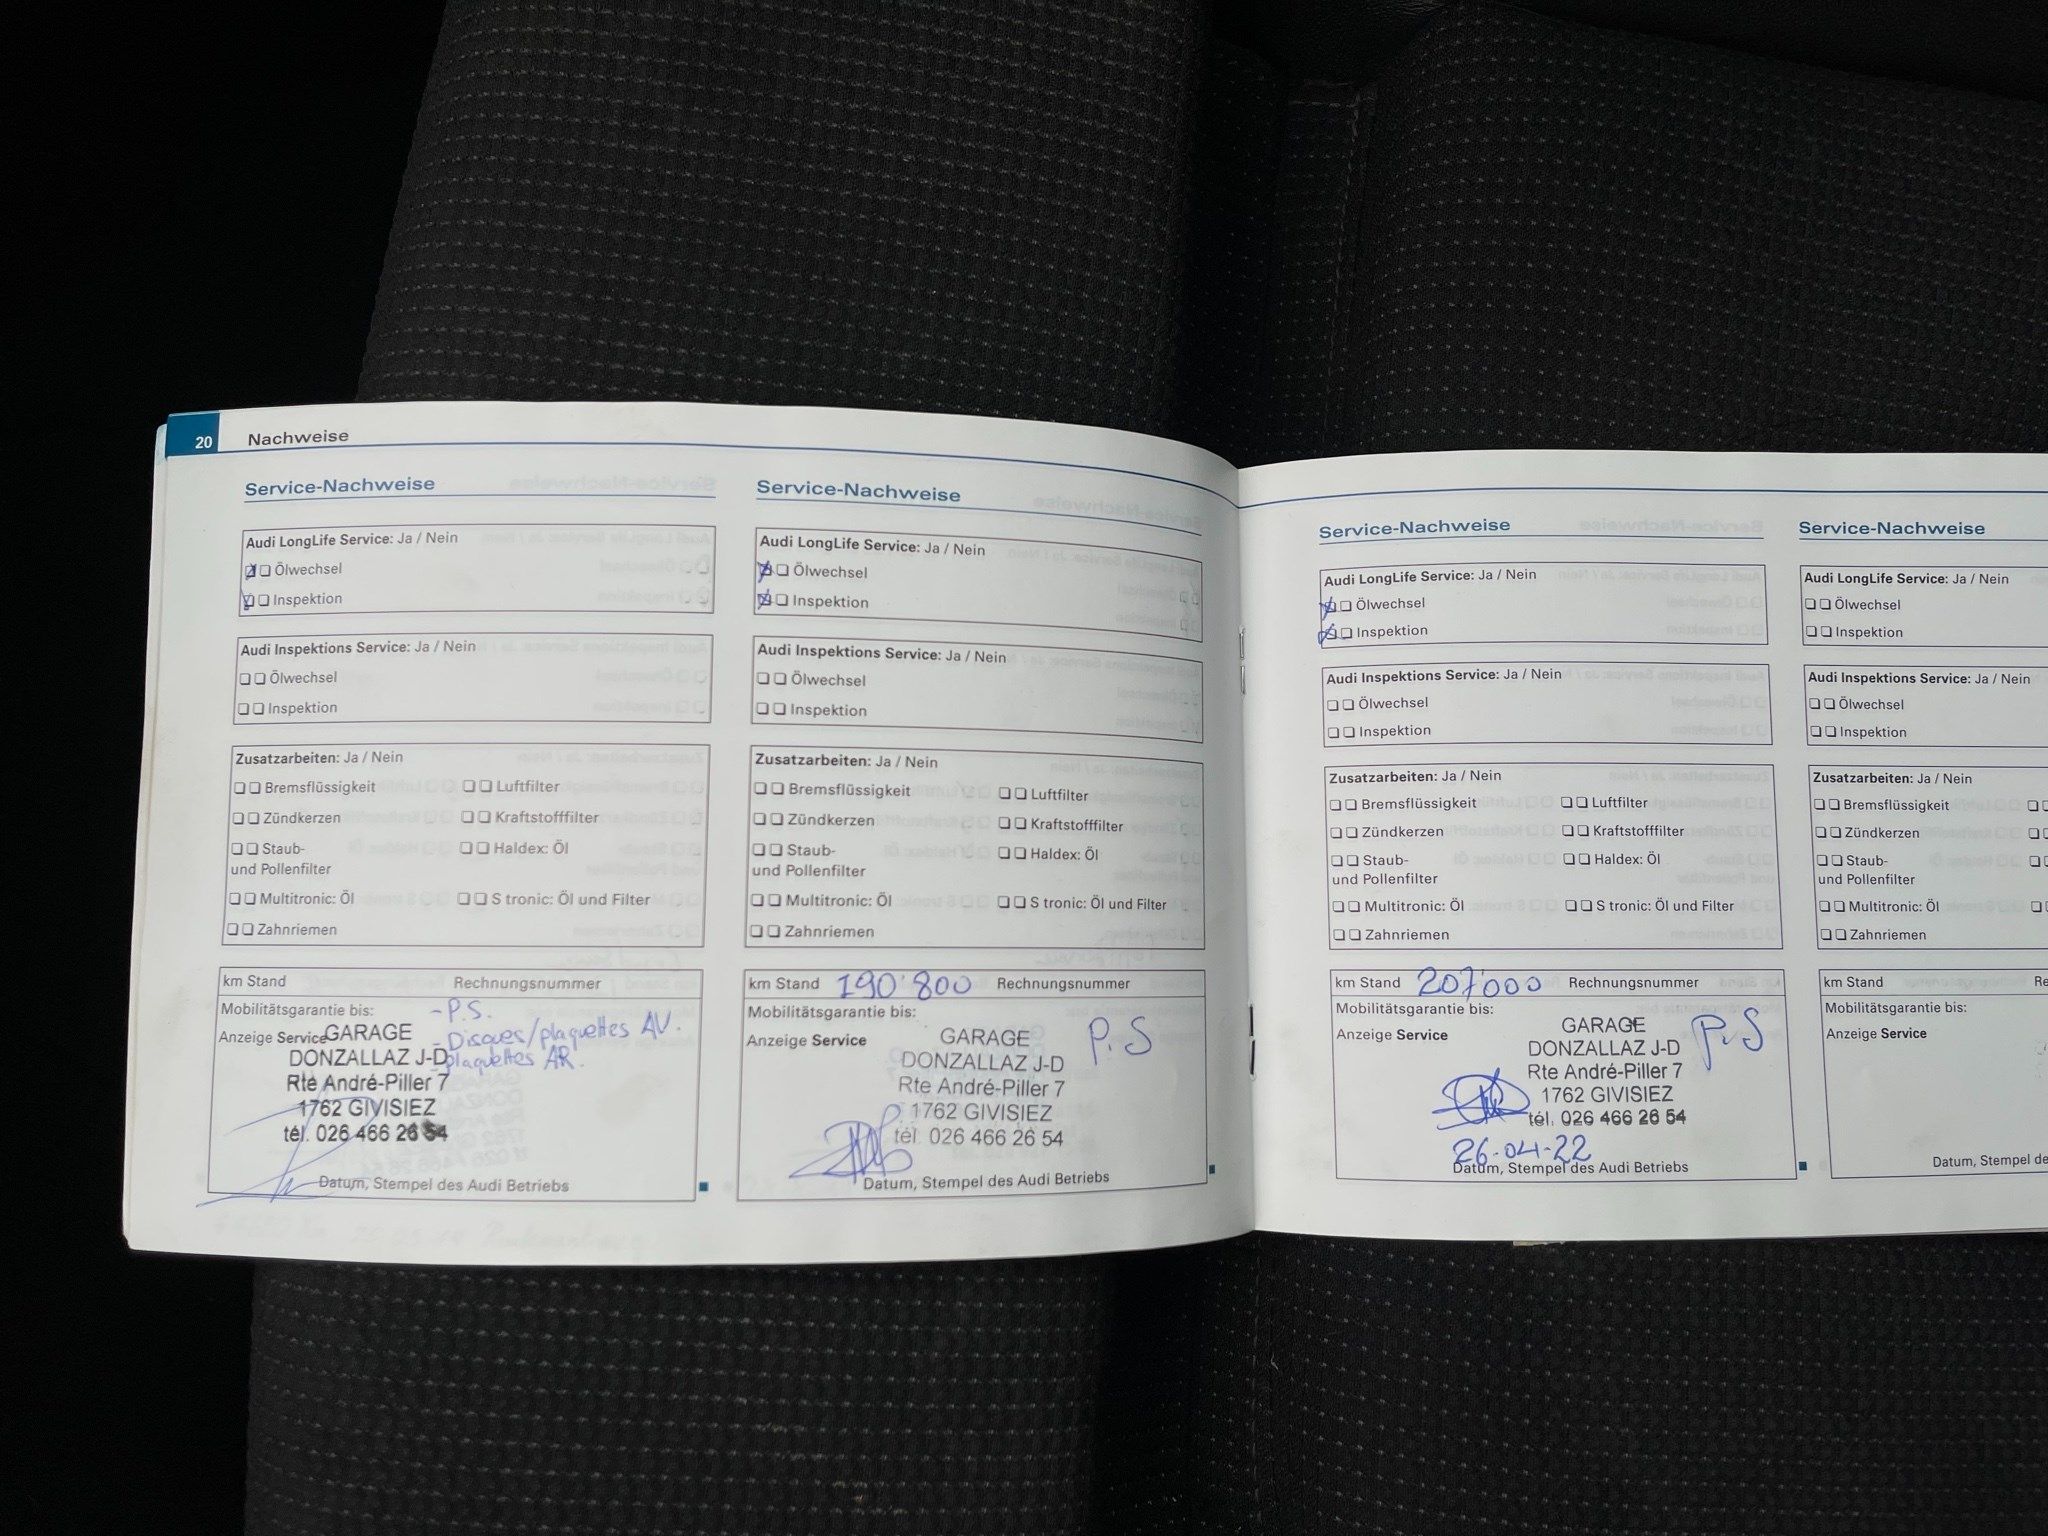 20 Nachweise
Service-Nachweise
Audi LongLife Service: Ja / Nein
Ölwechsel
Inspektion
Audi Inspektions Service: Ja / Nein
Ölwechsel
Inspektion
Zusatzarbeiten: Ja / Nein
Bremsflüssigkeit Luftfilter
Zündkerzen Kraftstofffilter
Staub- Haldex: Öl
und Pollenfilter
Multitronic: Öl S tronic: Öl und Filter
Zahnriemen
km Stand Rechnungsnummer
Mobilitätsgarantie bis:
- P.S.
Anzeige Service
- Disques/plaquettes AV.
- plaquettes AR.
GARAGE
DONZALLAZ J-D
Rte André-Piller 7
1762 GIVISIEZ
tél. 026 466 26 54
Datum, Stempel des Audi Betriebs
Service-Nachweise
Audi LongLife Service: Ja / Nein
Ölwechsel
Inspektion
Audi Inspektions Service: Ja / Nein
Ölwechsel
Inspektion
Zusatzarbeiten: Ja / Nein
Bremsflüssigkeit Luftfilter
Zündkerzen Kraftstofffilter
Staub- Haldex: Öl
und Pollenfilter
Multitronic: Öl S tronic: Öl und Filter
Zahnriemen
km Stand 190'800 Rechnungsnummer
Mobilitätsgarantie bis:
Anzeige Service P.S
GARAGE
DONZALLAZ J-D
Rte André-Piller 7
1762 GIVISIEZ
tél. 026 466 26 54
Datum, Stempel des Audi Betriebs
Service-Nachweise
Audi LongLife Service: Ja / Nein
Ölwechsel
Inspektion
Audi Inspektions Service: Ja / Nein
Ölwechsel
Inspektion
Zusatzarbeiten: Ja / Nein
Bremsflüssigkeit Luftfilter
Zündkerzen Kraftstofffilter
Staub- Haldex: Öl
und Pollenfilter
Multitronic: Öl S tronic: Öl und Filter
Zahnriemen
km Stand 207'000 Rechnungsnummer
Mobilitätsgarantie bis:
Anzeige Service P.S
GARAGE
DONZALLAZ J-D
Rte André-Piller 7
1762 GIVISIEZ
tél. 026 466 26 54
26-04-22
Datum, Stempel des Audi Betriebs
Service-Nachweise
Audi LongLife Service: Ja / Nein
Ölwechsel
Inspektion
Audi Inspektions Service: Ja / Nein
Ölwechsel
Inspektion
Zusatzarbeiten: Ja / Nein
Bremsflüssigkeit
Zündkerzen
Staub-
und Pollenfilter
Multitronic: Öl
Zahnriemen
km Stand Re
Mobilitätsgarantie bis:
Anzeige Service
Datum, Stempel de